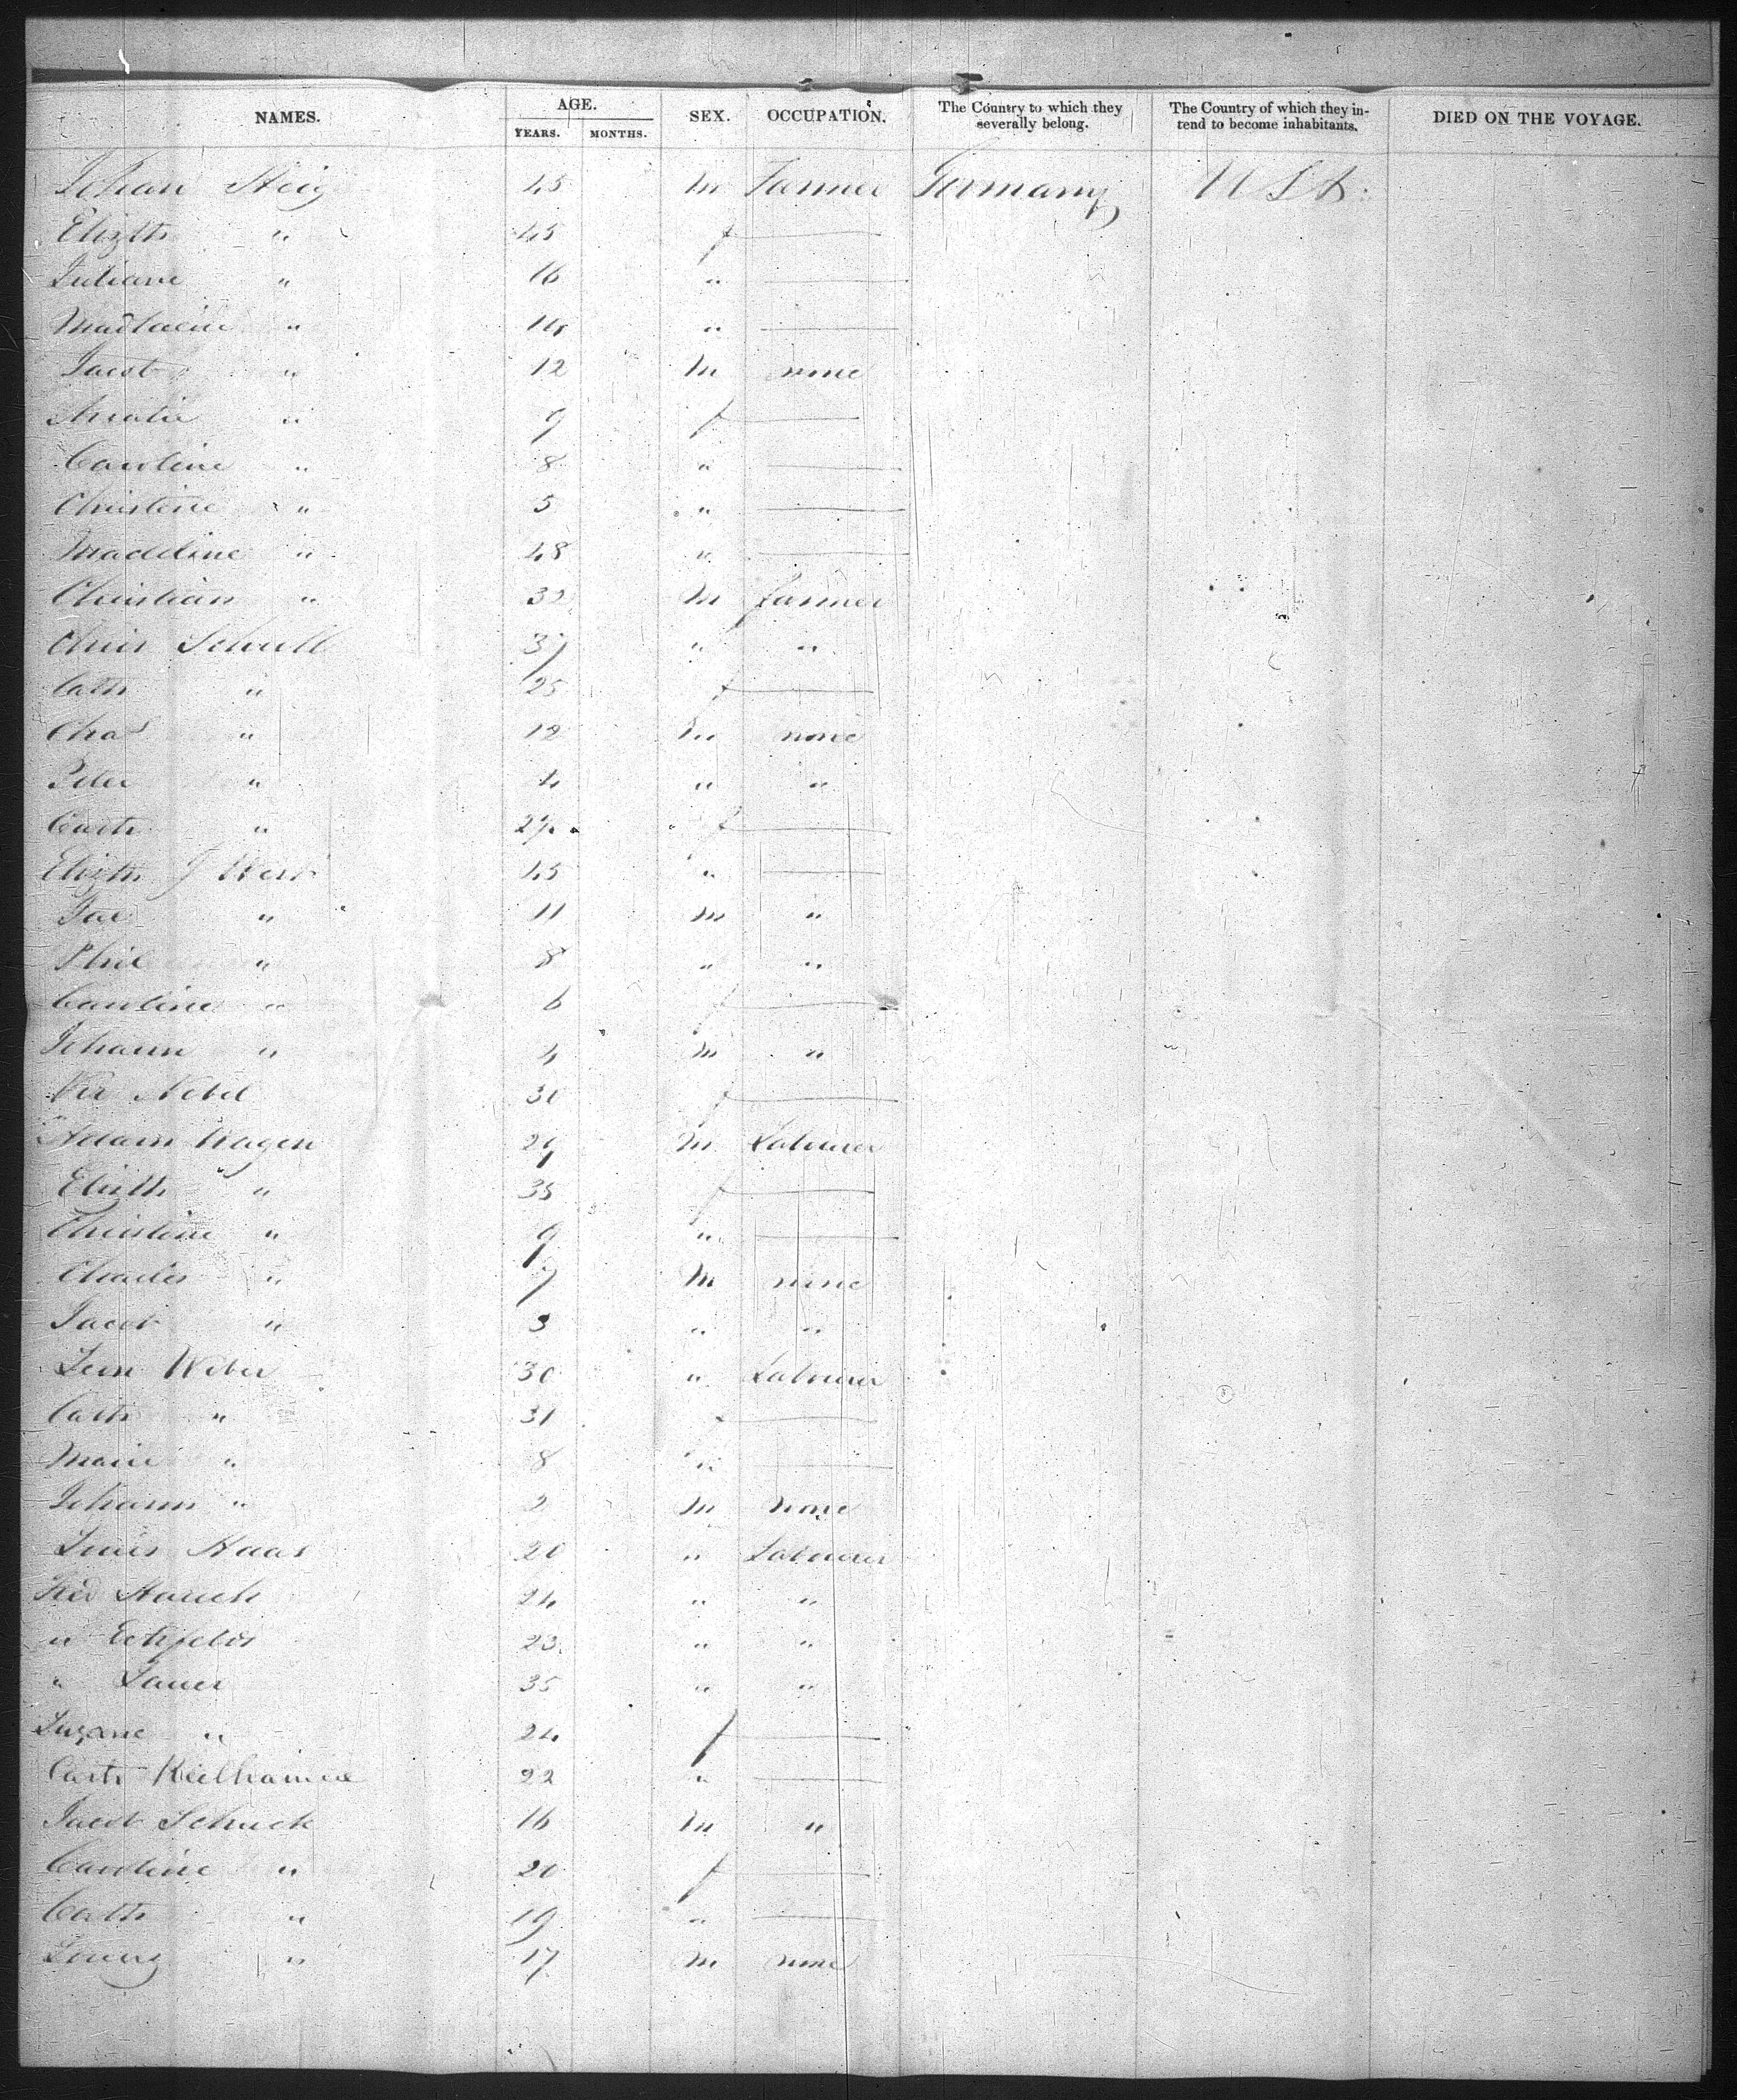 NAMES. AGE. YEARS. MONTHS. SEX. OCCUPATION. The Country to which they severally belong. The Country of which they intend to become inhabitants. DIED ON THE VOYAGE.
Johan 45 m Farmer Germany USA.
Elizth " 45 f
Juliane " 16 "
" "
Jacob " 12 m none
" 9 f
Caroline " 8 "
Christine " 5 "
Madeline " 48 "
Christian " 32 m farmer
Chris 37 " "
Cath " 25 f
Chas " 12 m none
Peter " 4 " "
Cath " f
Elizth J 45 "
Jac " 11 m "
Phil " 8 " "
Caroline " 6 f
Johann " 4 m "
Nebel 30 f
Adam Wagen 29 m Labourer
Elizth " 35 f
Christine " 9 "
Charles " 7 m none
Jacob " 3 " "
Weber 30 " Labourer
Cath " 31 f
Marie " 8 "
Johann " 2 m none
Louis Haas 20 " Labourer
24 " "
" 23 " "
" Lauer 35 " "
Suzane " 24 f
Cath 22 "
Jacob Schuck 16 m "
Caroline " 20 f
Cath " 19 "
" 17 m none